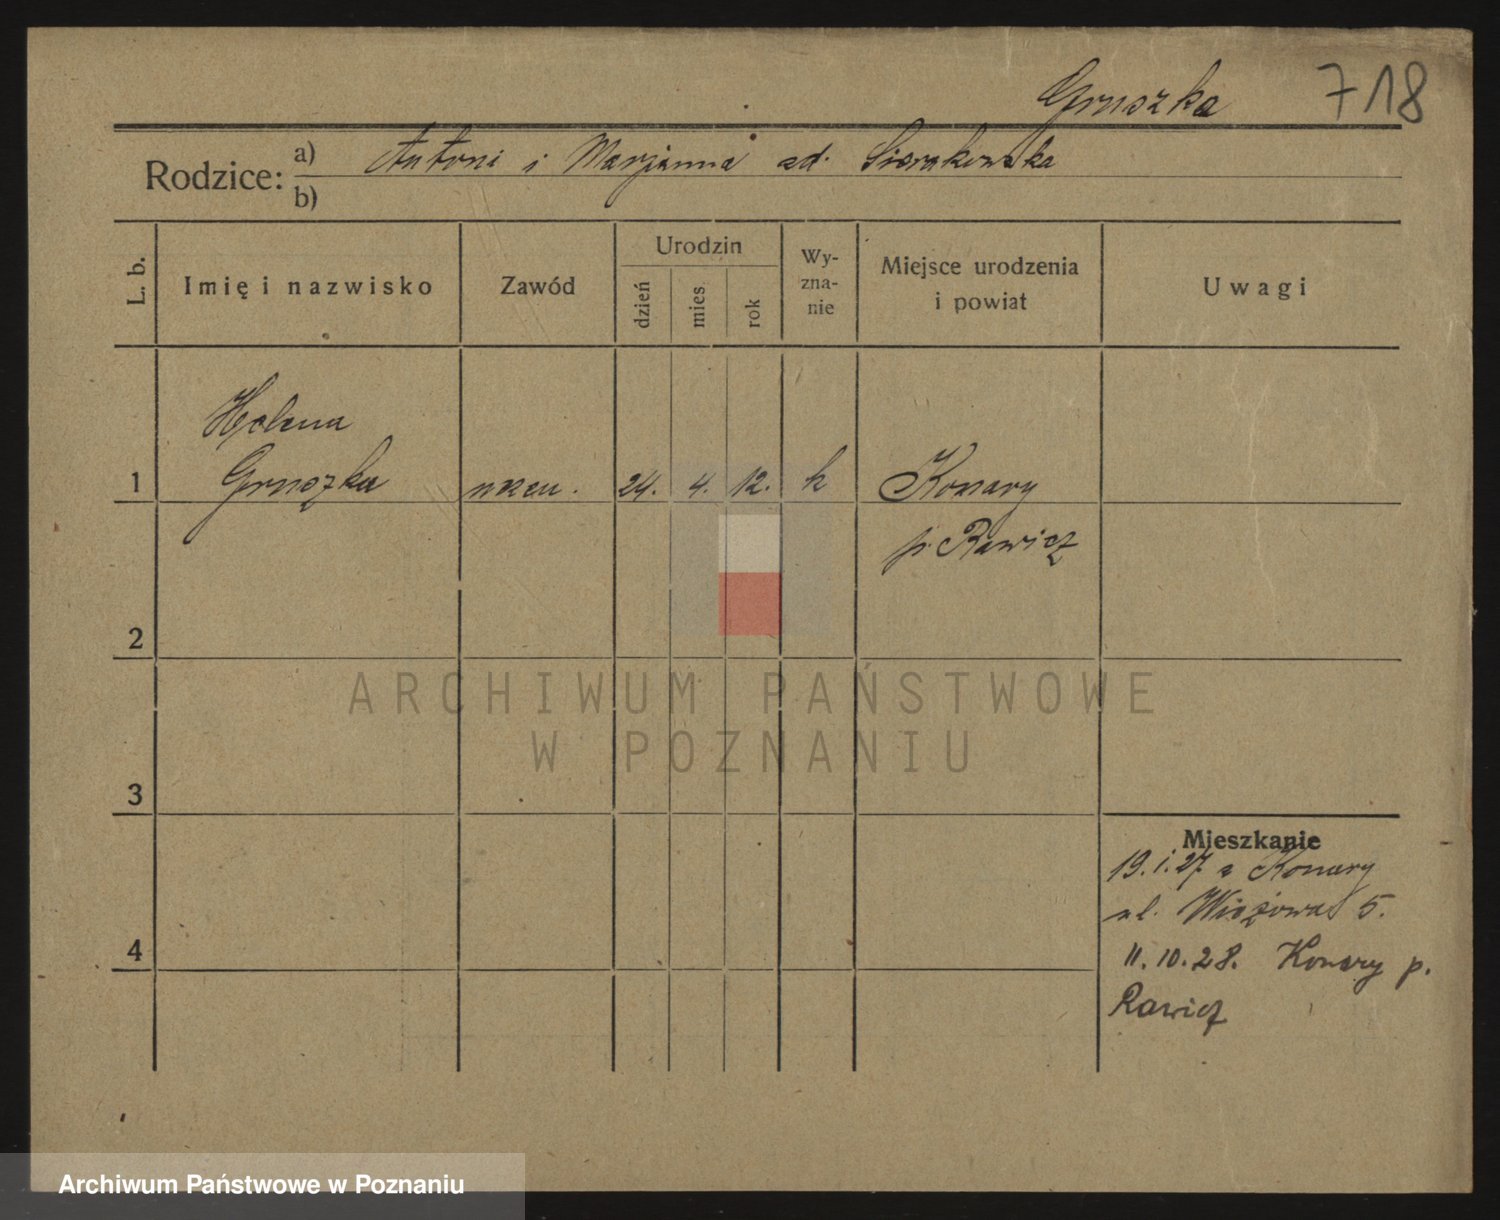 Gruszka 718
Rodzice: a) Antoni i Marjanna zd. Sierakowska
b)
L. b.
Imię i nazwisko
Zawód
Urodzin
dzień
mies.
rok
Wy-
zna-
nie
Miejsce urodzenia
i powiat
Uwagi
Helena
1 Gruszka uczen. 24. 4. 12. k Konary
p. Rawicz
2
3
4
Mieszkanie
19.1.27 z Konary
ul. Wiązowa 5.
11.10.28. Konary p.
Rawicz
ARCHIWUM PAŃSTWOWE
W POZNANIU
Archiwum Państwowe w Poznaniu